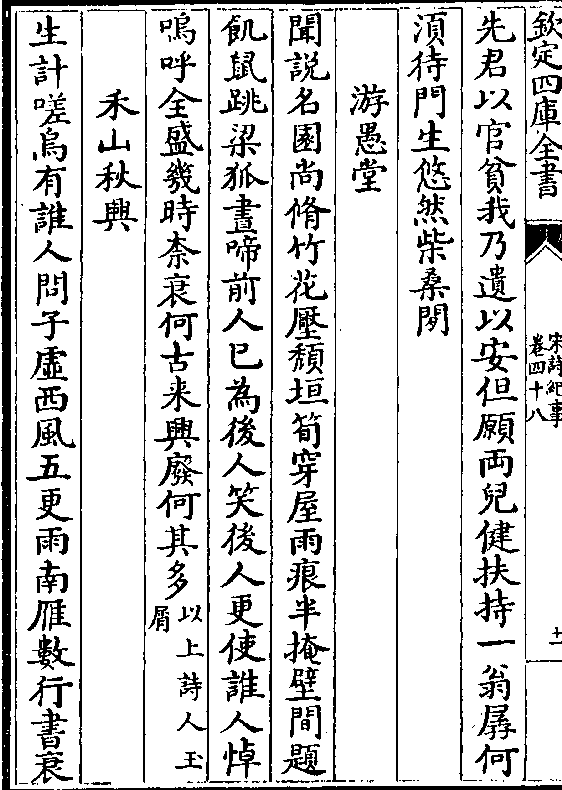 欽定四庫全書
宋詩紀事
卷四十八
十二
先君以官貧我乃遺以安但願両兒健扶持一翁孱何
湏待門生悠然柴桑閒
游愚堂
聞說名園尚脩竹花壓頹垣筍穿屋雨痕半掩壁間題
飢鼠跳梁狐晝啼前人已為後人笑後人更使誰人悼
嗚呼全盛幾時柰衰何古来興廢何其多
以上詩人玉
屑
禾山秋興
生計嗟烏有誰人問子虛西風五更雨南雁數行書衰